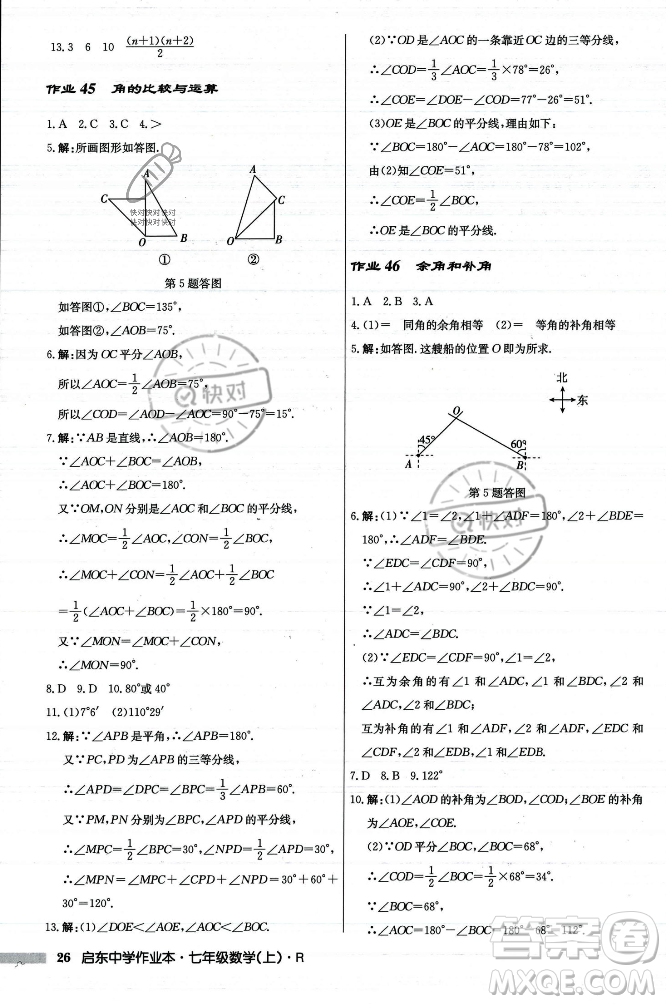 13. 3　6　10　(n+1)(n+2)/2
作业 45　角的比较与运算
1. A　2. C　3. C　4. >
5. 解:所画图形如答图.
A
C
O
B
①
A
C
O
B
②
第 5 题答图
如答图①,∠BOC=135°,
如答图②,∠AOB=75°.
6. 解:因为 OC 平分∠AOB,∠AOB=150°,
所以∠AOC=1/2∠AOB=75°.
所以∠COD=∠AOD-∠AOC=90°-75°=15°.
7. 解:∵AB 是直线,∴∠AOB=180°.
又∵∠AOC+∠BOC=∠AOB,
∴∠AOC+∠BOC=180°.
又∵OM,ON 分别是∠AOC,∠BOC 的平分线,
∴∠MOC=1/2∠AOC,∠CON=1/2∠BOC.
∴∠MOC+∠CON=1/2∠AOC+1/2∠BOC
=1/2(∠AOC+∠BOC)=1/2×180°=90°.
又∵∠MON=∠MOC+∠CON,
∴∠MON=90°.
8. D　9. D　10. 80°或 40°
11. (1)7°6′　(2)110°29′
12. 解:∵∠APB 是平角,∴∠APB=180°.
又∵PC,PD 是∠APB 的三等分线,
∴∠APC=∠CPD=∠BPD=1/3∠APB=60°.
又∵PM,PN 分别是∠APC,∠BPD 的平分线,
∴∠MPC=1/2∠APC=30°,∠DPN=1/2∠BPD=
30°.
∴∠MPN=∠MPC+∠CPD+∠DPN=30°+60°+
30°=120°.
13. 解:(1)∠DOE<∠AOE<∠AOB<∠AOC.
26　启东中学作业本·七年级数学(上)·R
(2)∵OD 是∠AOC 的一条靠近 OC 边的三等分线,
∴∠COD=1/3∠AOC=1/3×78°=26°,
∴∠COE=∠DOE-∠COD=77°-26°=51°.
(3)OE 是∠BOC 的平分线,理由如下:
∵∠BOC=180°-∠AOC=180°-78°=102°,
由(2)知∠COE=51°,
∴∠COE=1/2∠BOC,
∴OE 是∠BOC 的平分线.
作业 46　余角和补角
1. A　2. B　3. A
4. (1)=　同角的余角相等　(2)=　等角的补角相等
5. 解:如答图.这艘船的位置 O 即为所求.
北
东
O
45°
60°
A
B
第 5 题答图
6. 解:(1)∵∠1=∠2,∠1+∠ADF=180°,∠2+∠BDE=
180°,∴∠ADF=∠BDE.
∵∠EDC=∠CDF=90°,
∴∠1+∠ADC=90°,∠2+∠BDC=90°.
又∵∠1=∠2,
∴∠ADC=∠BDC.
(2)∵∠EDC=∠CDF=90°,
∴互为余角的有∠1 与∠ADC,∠1 与∠BDC,∠2 与
∠ADC,∠2 与∠BDC;
互为补角的有∠1 与∠ADF,∠1 与∠BDE,∠2 与
∠ADF,∠2 与∠BDE,∠EDC 与∠CDF.
7. D　8. B　9. 122°
10. 解:(1)∠AOD 的补角为∠BOD,∠COD;∠BOE 的补角
为∠AOE,∠COE.
(2)∵OD 平分∠BOC,∠BOC=68°,
∴∠COD=1/2∠BOC=1/2×68°=34°.
∵∠BOC=68°,
∴∠AOC=180°-∠BOC=180°-68°=112°.
快对
快对
快对快对快对
快对快对快对
答案圈